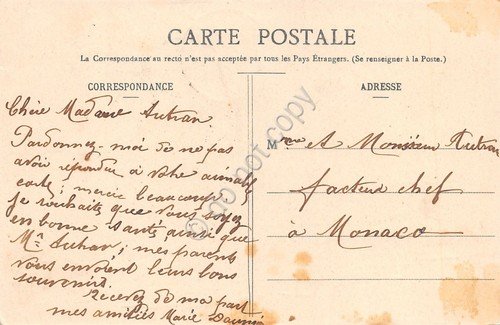 CARTE POSTALE
La Correspondance au recto n'est pas acceptée par tous les Pays Étrangers. (Se renseigner à la Poste.)
CORRESPONDANCE
Chère Madame Autran
Pardonnez-moi de ne pas
avoir répondu à votre aimable
carte; merci beaucoup
je souhaite que vous soyez
en bonne santé, ainsi que
Mr Autran; mes parents
vous envoient leurs bons
souvenirs.
Recevez de ma part
mes amitiés Marie
ADRESSE
Mme et Monsieur Autran
facteur chef
à Monaco
do not copy